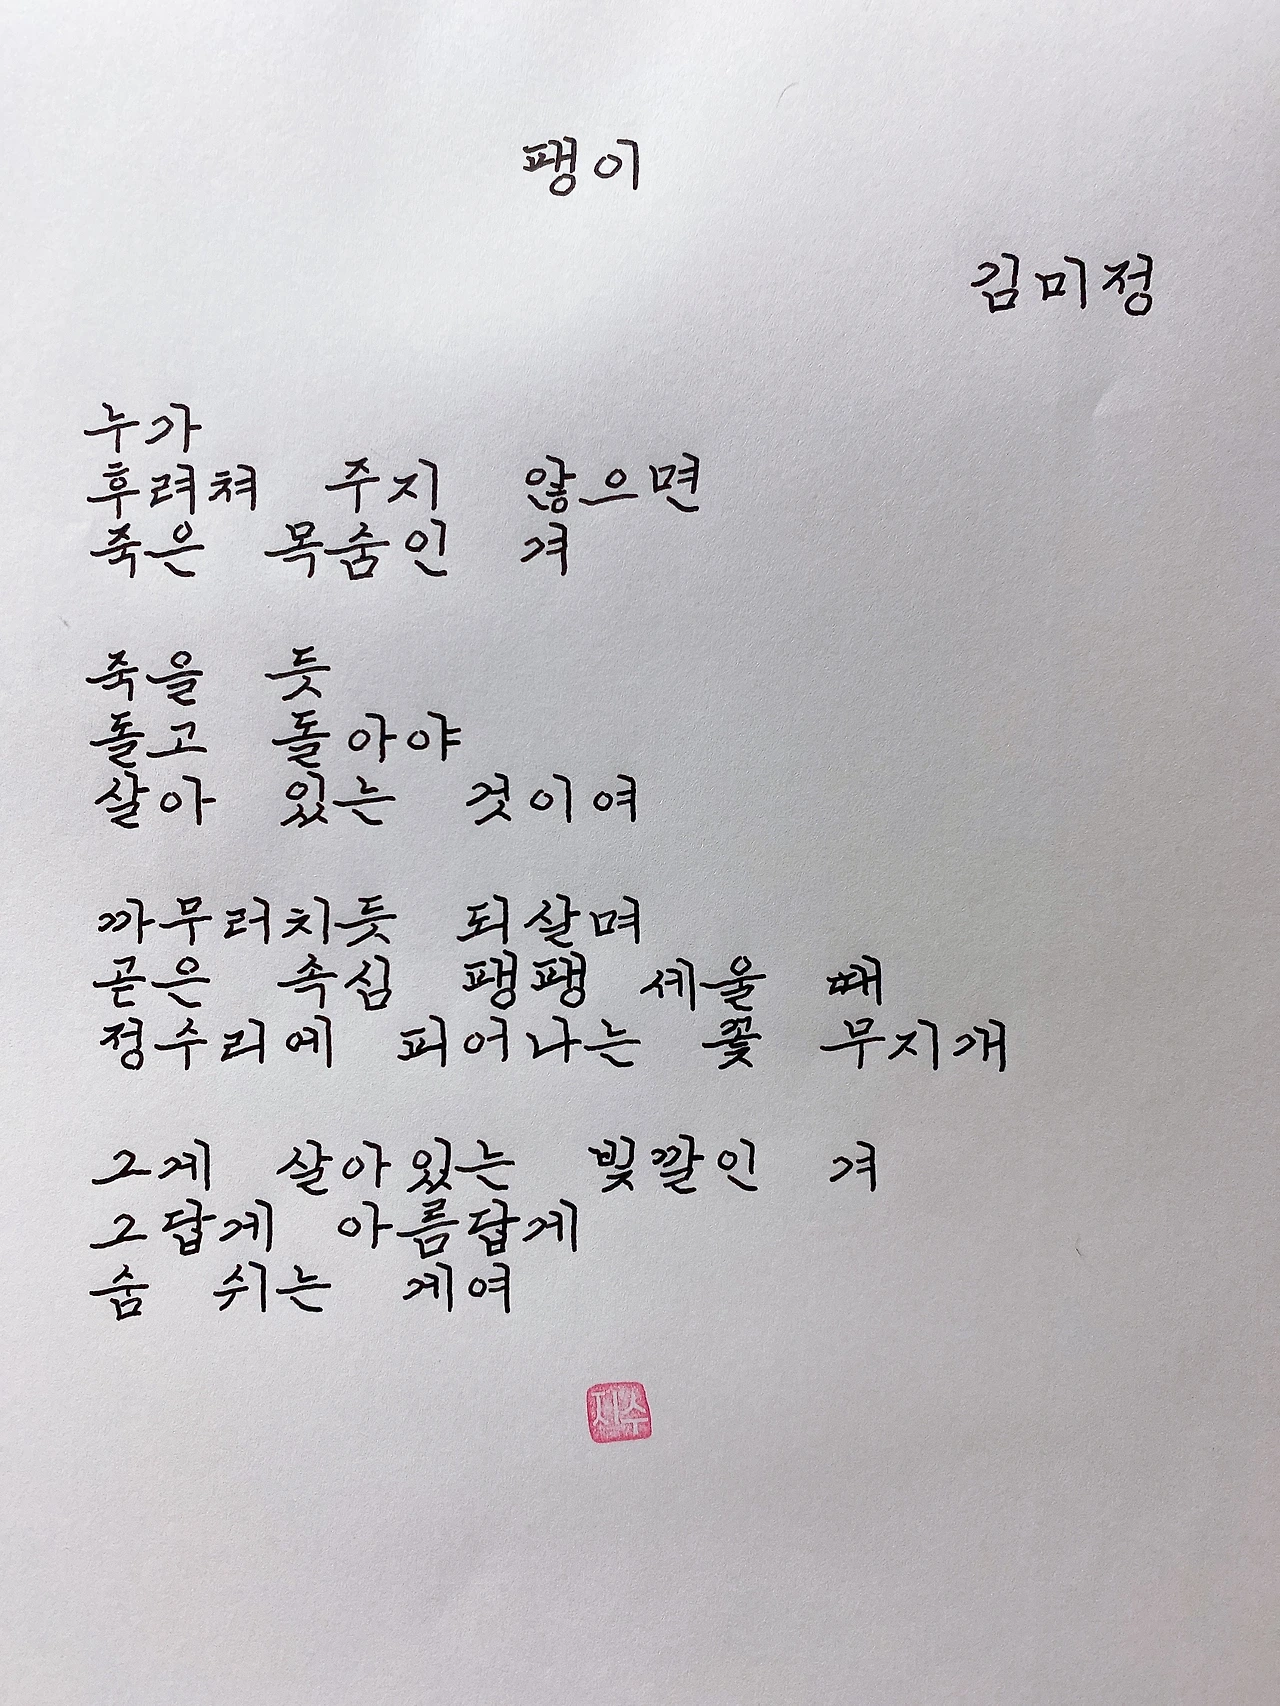 팽이
김미정
누가
후려쳐 주지 않으면
죽은 목숨인 겨
죽을 듯
돌고 돌아야
살아 있는 것이여
까무러치듯 되살며
곧은 속심 팽팽 세울 때
정수리에 피어나는 꽃 무지개
그게 살아있는 빛깔인 겨
그답게 아름답게
숨 쉬는 게여